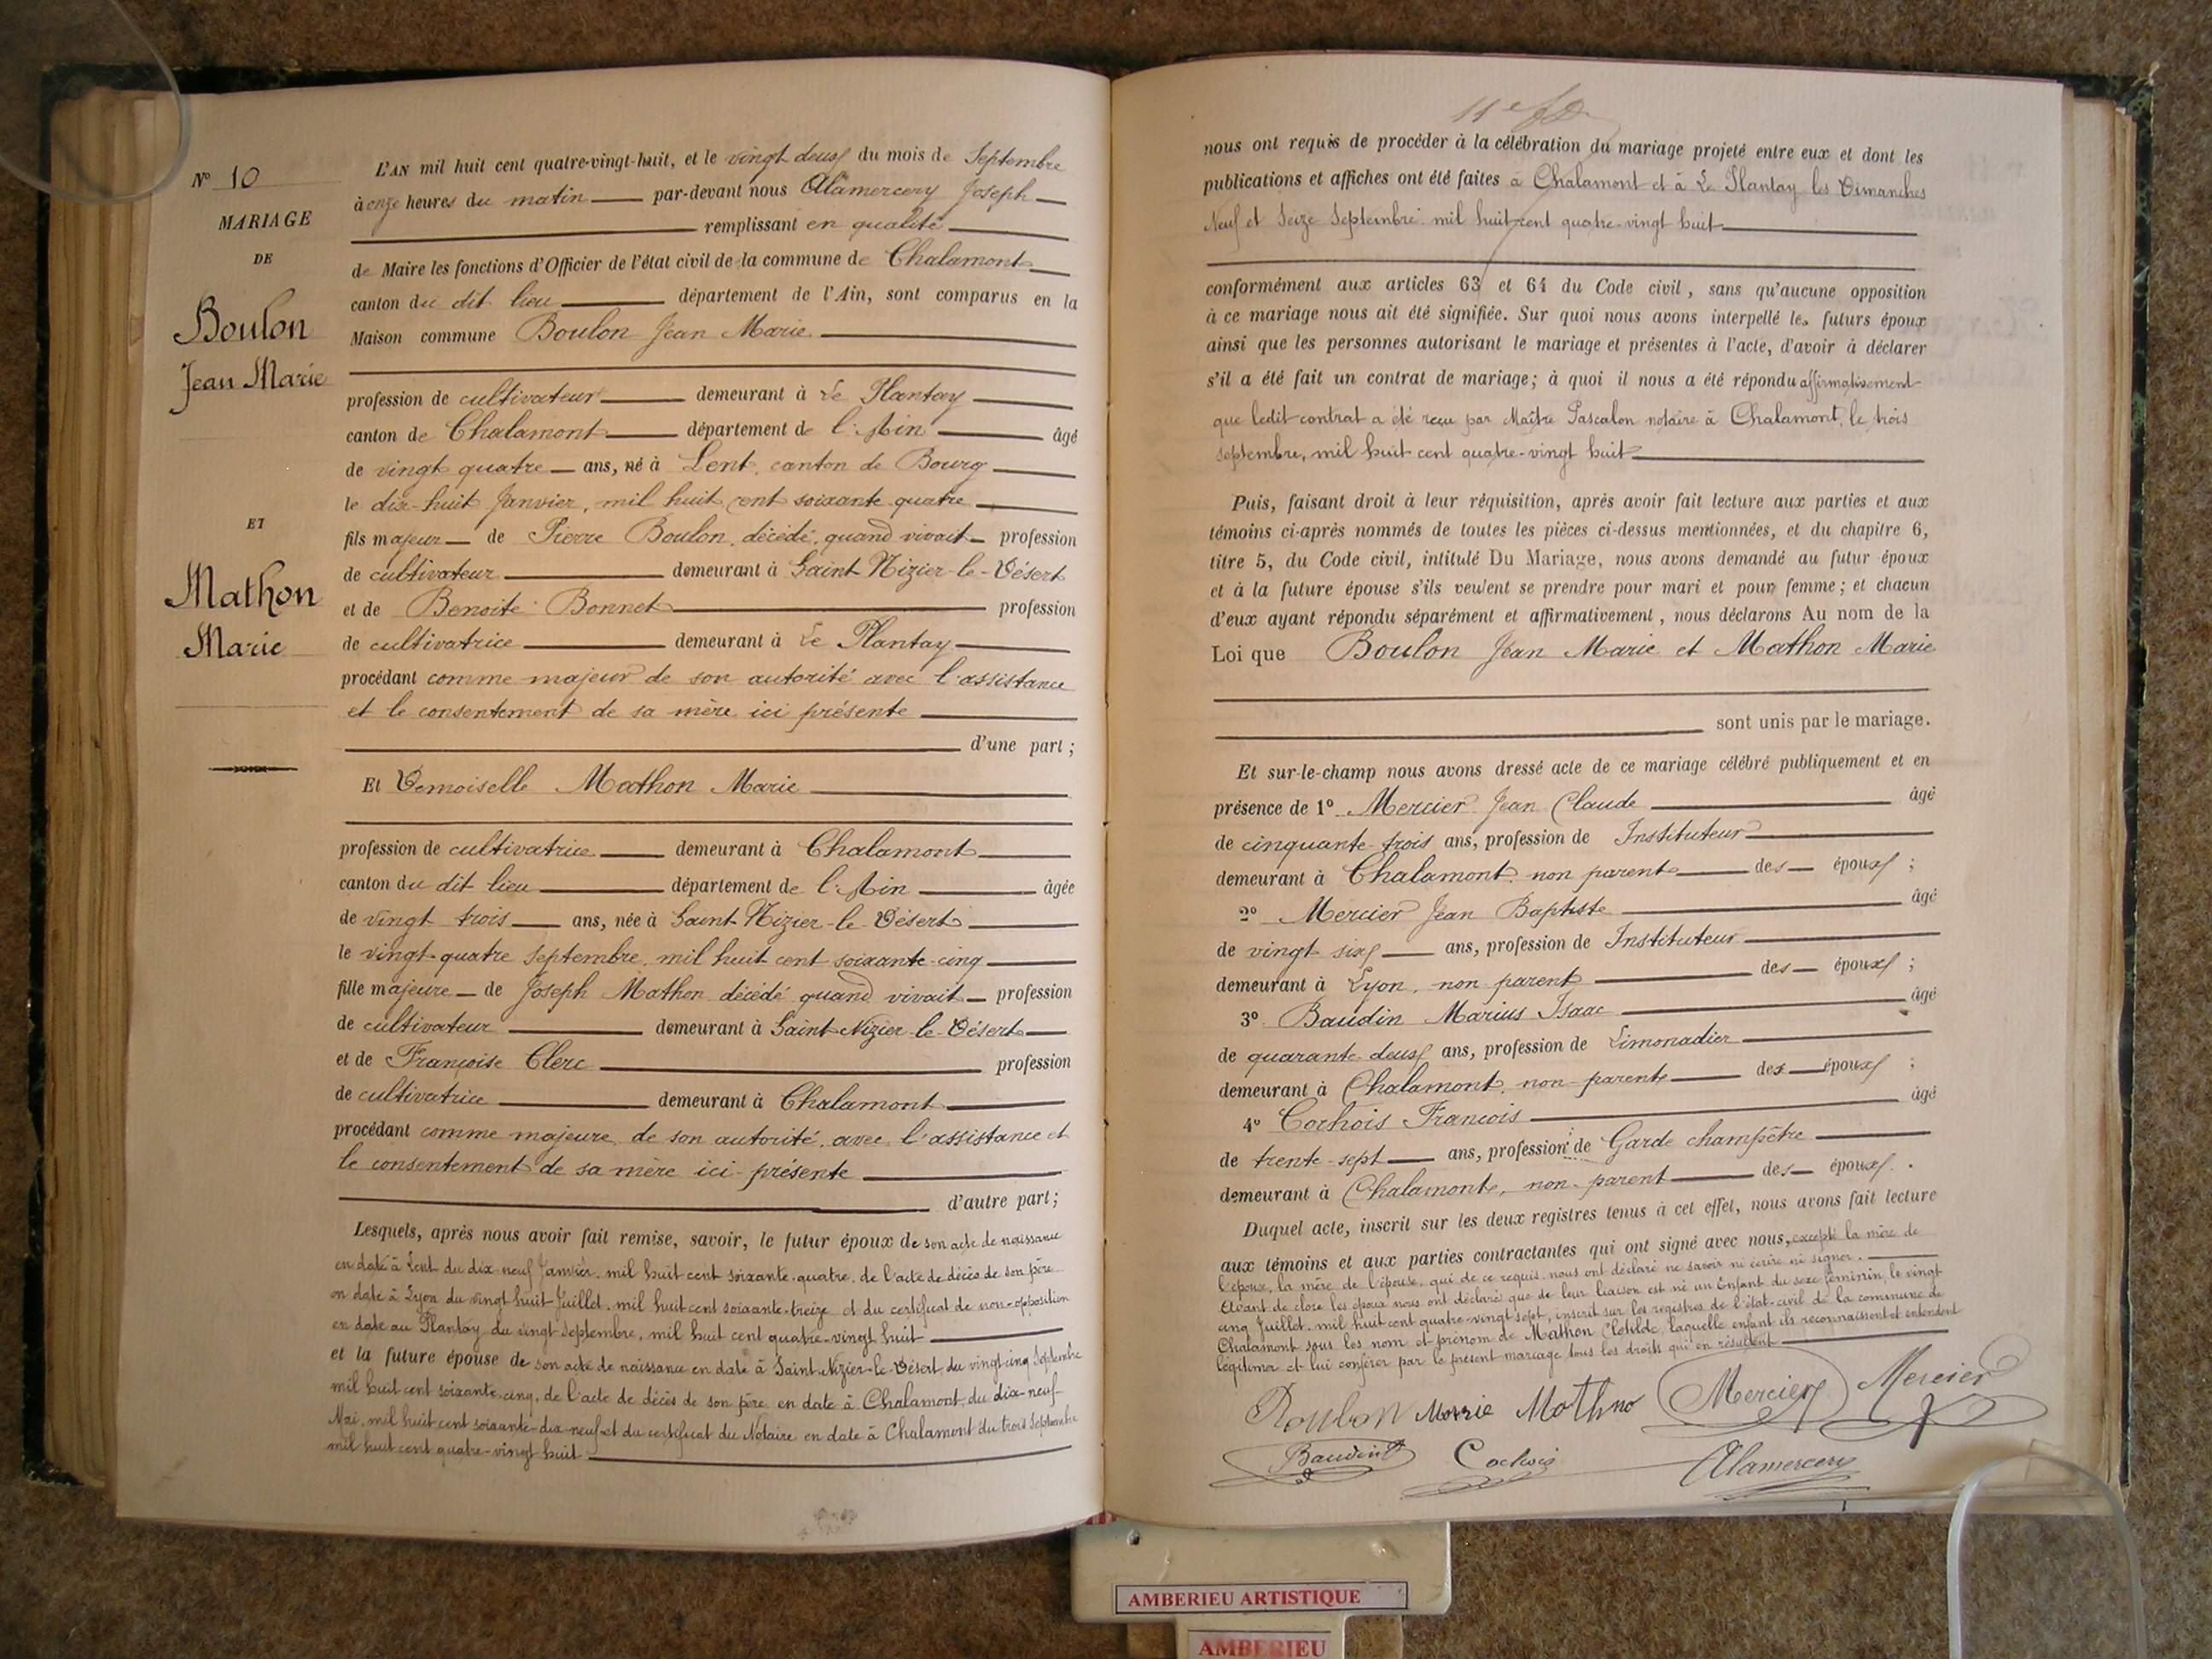 N° 10
MARIAGE
DE
Boulon
Jean Marie
ET
Mathon
Marie
L'AN mil huit cent quatre-vingt-huit, et le vingt deux du mois de Septembre
à onze heures du matin par-devant nous Alamercery Joseph
remplissant en qualité
de Maire les fonctions d'Officier de l'état civil de la commune de Chalamont
canton du dit lieu département de l'Ain, sont comparus en la
Maison commune Boulon Jean Marie
profession de cultivateur demeurant à Le Plantay
canton de Chalamont département de l'Ain âgé
de vingt quatre ans, né à Lent, canton de Bourg
le dix-huit Janvier, mil huit cent soixante quatre
fils majeur de Pierre Boulon, décédé, quand vivait profession
de cultivateur demeurant à Saint Nizier-le-Désert
et de Benoite Bonnet profession
de cultivatrice demeurant à Le Plantay
procédant comme majeur de son autorité avec l'assistance
et le consentement de sa mère ici présente
d'une part ;
Et Demoiselle Mathon Marie
profession de cultivatrice demeurant à Chalamont
canton du dit lieu département de l'Ain âgée
de vingt trois ans, née à Saint Nizier-le-Désert
le vingt-quatre Septembre, mil huit cent soixante-cinq
fille majeure de Joseph Mathon décédé quand vivait profession
de cultivateur demeurant à Saint-Nizier-le-Désert
et de Françoise Clerc profession
de cultivatrice demeurant à Chalamont
procédant comme majeure, de son autorité, avec l'assistance et
le consentement de sa mère ici présente
d'autre part ;
Lesquels, après nous avoir fait remise, savoir, le futur époux de son acte de naissance
en date à Lent du dix-neuf Janvier, mil huit cent soixante-quatre, de l'acte de décès de son père
en date à Lyon du vingt huit Juillet, mil huit cent soixante-treize et du certificat de non-opposition
en date au Plantay du vingt Septembre, mil huit cent quatre-vingt huit
et la future épouse de son acte de naissance en date à Saint-Nizier-le-Désert, du vingt-cinq Septembre
mil huit cent soixante-cinq, de l'acte de décès de son père, en date à Chalamont, du dix-neuf
Mai, mil huit cent soixante-dix-neuf et du certificat du Notaire en date à Chalamont du trois Septembre
mil huit cent quatre-vingt huit
11e
nous ont requis de procéder à la célébration du mariage projeté entre eux et dont les
publications et affiches ont été faites à Chalamont et à Le Plantay les Dimanches
Neuf et Seize Septembre mil huit cent quatre-vingt huit
conformément aux articles 63 et 64 du Code civil, sans qu'aucune opposition
à ce mariage nous ait été signifiée. Sur quoi nous avons interpellé les futurs époux
ainsi que les personnes autorisant le mariage et présentes à l'acte, d'avoir à déclarer
s'il a été fait un contrat de mariage ; à quoi il nous a été répondu affirmativement
que ledit contrat a été reçu par Maître Pascalon notaire à Chalamont, le trois
septembre, mil huit cent quatre-vingt huit
Puis, faisant droit à leur réquisition, après avoir fait lecture aux parties et aux
témoins ci-après nommés de toutes les pièces ci-dessus mentionnées, et du chapitre 6,
titre 5, du Code civil, intitulé Du Mariage, nous avons demandé au futur époux
et à la future épouse s'ils veulent se prendre pour mari et pour femme ; et chacun
d'eux ayant répondu séparément et affirmativement, nous déclarons Au nom de la
Loi que Boulon Jean Marie et Mathon Marie
sont unis par le mariage.
Et sur-le-champ nous avons dressé acte de ce mariage célébré publiquement et en
présence de 1° Mercier Jean Claude âgé
de cinquante-trois ans, profession de Instituteur
demeurant à Chalamont, non parent des époux ;
2° Mercier Jean Baptiste âgé
de vingt six ans, profession de Instituteur
demeurant à Lyon, non parent des époux ;
3° Baudin Marius Isaac âgé
de quarante-deux ans, profession de Limonadier
demeurant à Chalamont, non parent des époux ;
4° Cochois François âgé
de trente-sept ans, profession de Garde champêtre
demeurant à Chalamont, non parent des époux.
Duquel acte, inscrit sur les deux registres tenus à cet effet, nous avons fait lecture
aux témoins et aux parties contractantes qui ont signé avec nous, excepté la mère de
l'époux, la mère de l'épouse, qui de ce requis nous ont déclaré ne savoir ni écrire ni signer.
Avant de clore les époux nous ont déclaré que de leur liaison est né un Enfant du sexe féminin, le vingt
cinq Juillet, mil huit cent quatre-vingt sept, inscrit sur les registres de l'état-civil de la commune de
Chalamont sous les nom et prénom de Mathon Clotilde, laquelle enfant ils reconnaissent et entendent
légitimer et lui conférer par le présent mariage tous les droits qui en résultent
Boulon Marie Mathno Mercier Mercier
Baudin Cochois Alamercery
AMBERIEU ARTISTIQUE
AMBERIEU